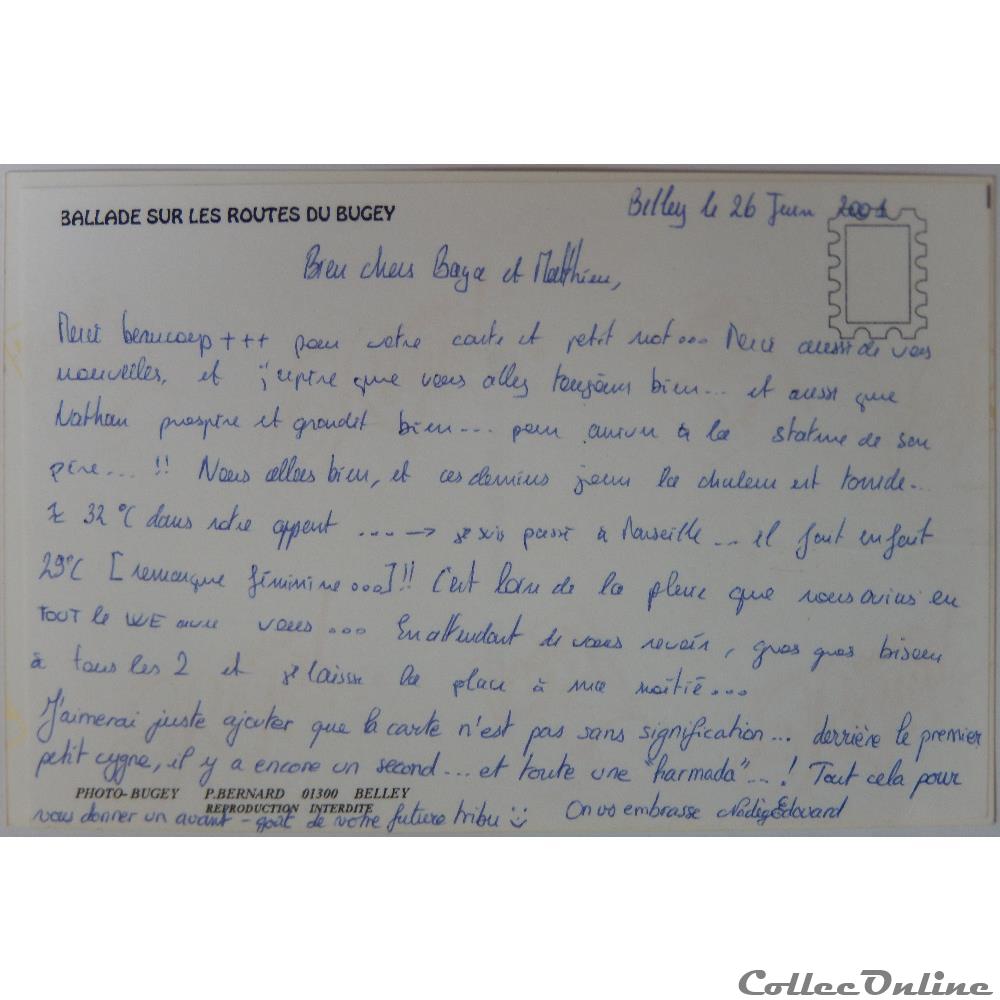 BALLADE SUR LES ROUTES DU BUGEY
Belley le 26 Juin 2001
Bien chers Baya et Matthieu,
Merci beaucoup +++ pour votre carte et petit mot... Merci aussi de vos
nouvelles, et j'espère que vous allez toujours bien... et aussi que
Nathan prospère et grandit bien... pour arriver à la stature de son
père...!! Nous allons bien, et ces derniers jours la chaleur est torride...
32°C dans notre appart ....→ je suis passé à Marseille... il fait en fait
29°C [remarque féminine...]!! C'est loin de la pluie que nous avions eu
TOUT le WE avec vous... En attendant de vous revoir, gros gros bisous
à tous les 2 et je laisse la place à ma moitié...
J'aimerai juste ajouter que la carte n'est pas sans signification... derrière le premier
petit cygne, il y a encore un second... et toute une "harmada"...! Tout cela pour
PHOTO-BUGEY P.BERNARD 01300 BELLEY
REPRODUCTION INTERDITE
vous donner un avant-goût de votre future tribu On vs embrasse Nadège Edouard
CollecOnline